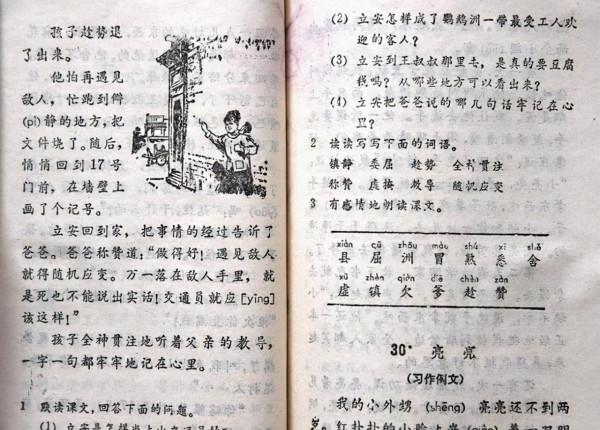 孩子趁势退
了出来。
他怕再遇见
敌人，忙跑到僻
(pì)静的地方，把
文件烧了。随后，
悄悄回到17号
门前，在墙壁上
画了个记号。
立安回到家，把事情的经过告诉了
爸爸。爸爸称赞道，“做得好！遇见敌人
就得随机应变。万一落在敌人手里，就
是死也不能说出实话！交通员就应[yīng]
该这样！”
孩子全神贯注地听着父亲的教导，
一字一句都牢牢地记在心里。
1 默读课文，回答下面的问题。
(1) 立安是怎样当上
(2) 立安怎样成了鹦鹉洲一带最受工人欢
迎的客人？
(3) 立安到王叔叔那里去，是真的要豆腐
钱吗？从哪些地方可以看出来？
(4) 立安把爸爸说的哪几句话牢记在心
里？
2 读读写写下面的词语。
镇静 委屈 趁势 全神贯注
称赞 虚掩 教导 随机应变
3 有感情地朗读课文。
xiàn qū zhōu mào shú xī shě
县 屈 洲 冒 熟 悉 舍
xū zhèn qiàn diē chèn zàn
虚 镇 欠 爹 趁 赞
30* 亮亮
(习作例文)
我的小外甥 (shēng) 亮亮还不到两
岁。红扑扑的小脸上